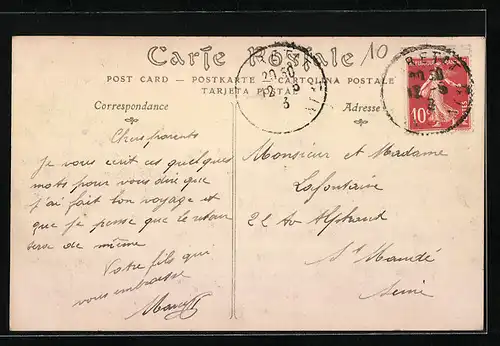 Carte Postale
10
POST CARD — POSTKARTE — CARTOLINA POSTALE
TARJETA POSTAL
Correspondance
Adresse
20 30
10
Chers parents
Je vous écrit ces quelques
mots pour vous dire que
j'ai fait bon voyage et
que je pense que le retour
sera de même
Votre fils qui
vous embrasse
Monsieur et Madame
Lafontaine
22 Av Alphand
St Mandé
Seine